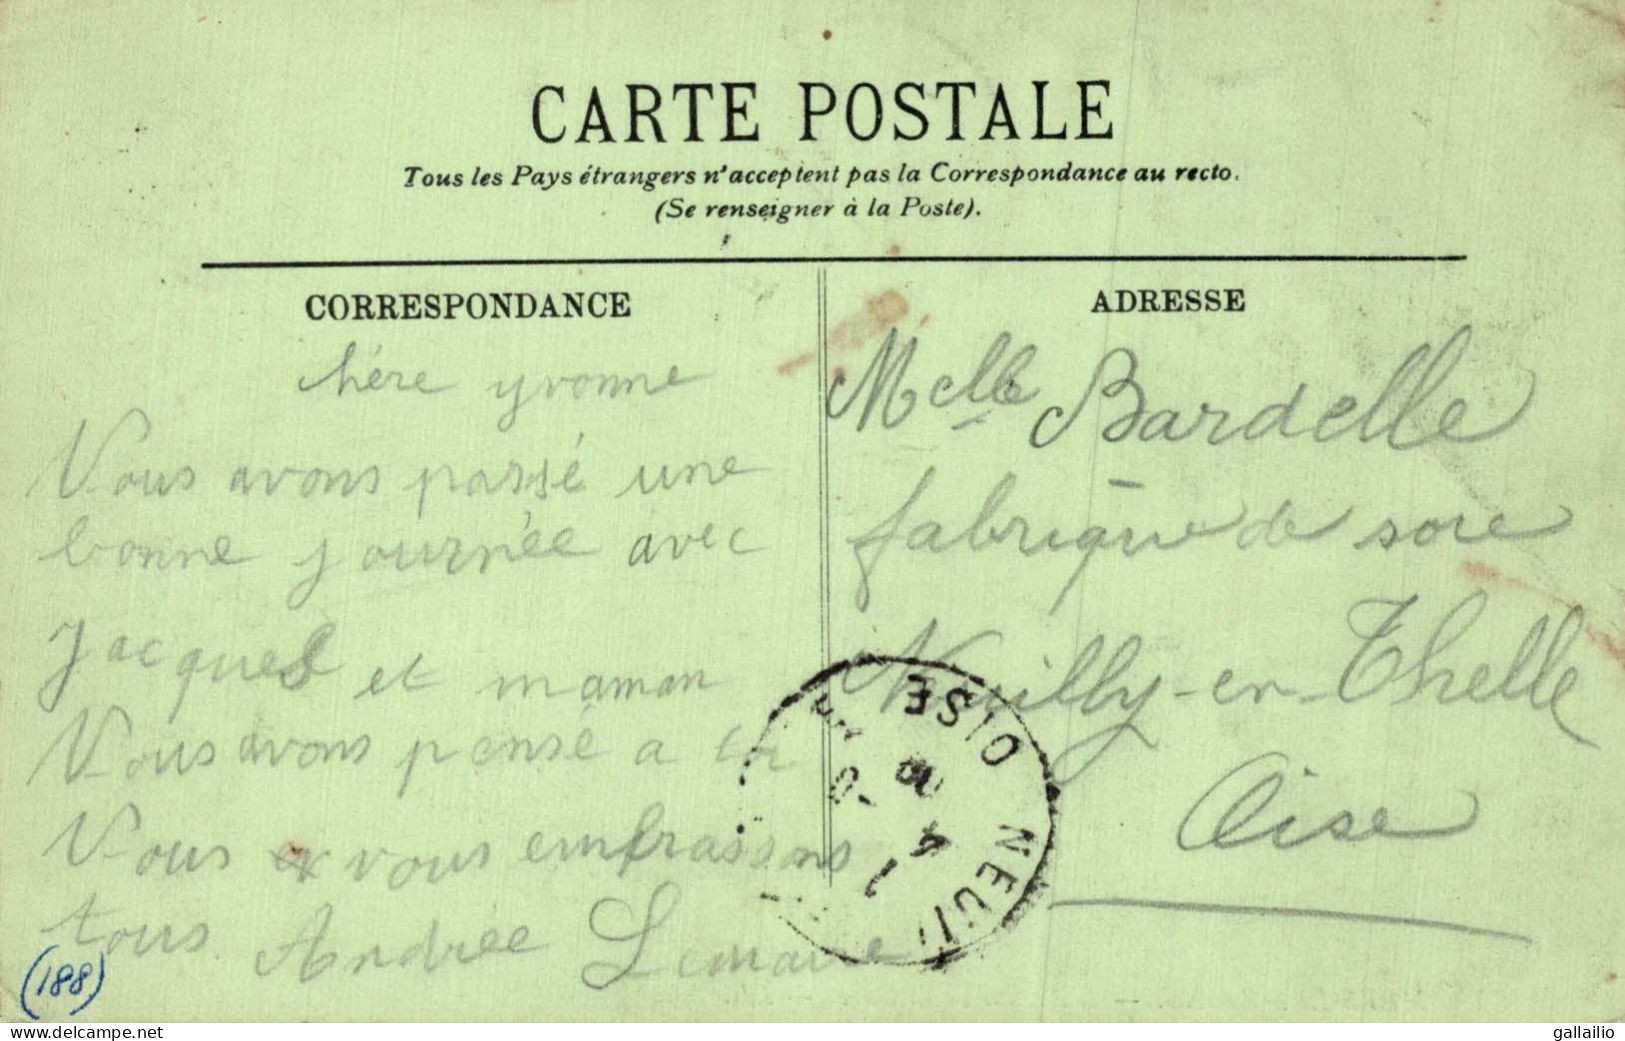 CARTE POSTALE
Tous les Pays étrangers n'acceptent pas la Correspondance au recto.
(Se renseigner à la Poste).
CORRESPONDANCE
hére yvonne
Vous avons passé une
bonne journée avec
Jacques et maman
Vous avons pensé a toi
Vous vous embrassons
tous Andrée Lemaire
(188)
ADRESSE
Melle Bardelle
fabrique de soie
Neuilly-en-Thelle
Oise
OISE NEUI
delcampe.net
gallailio